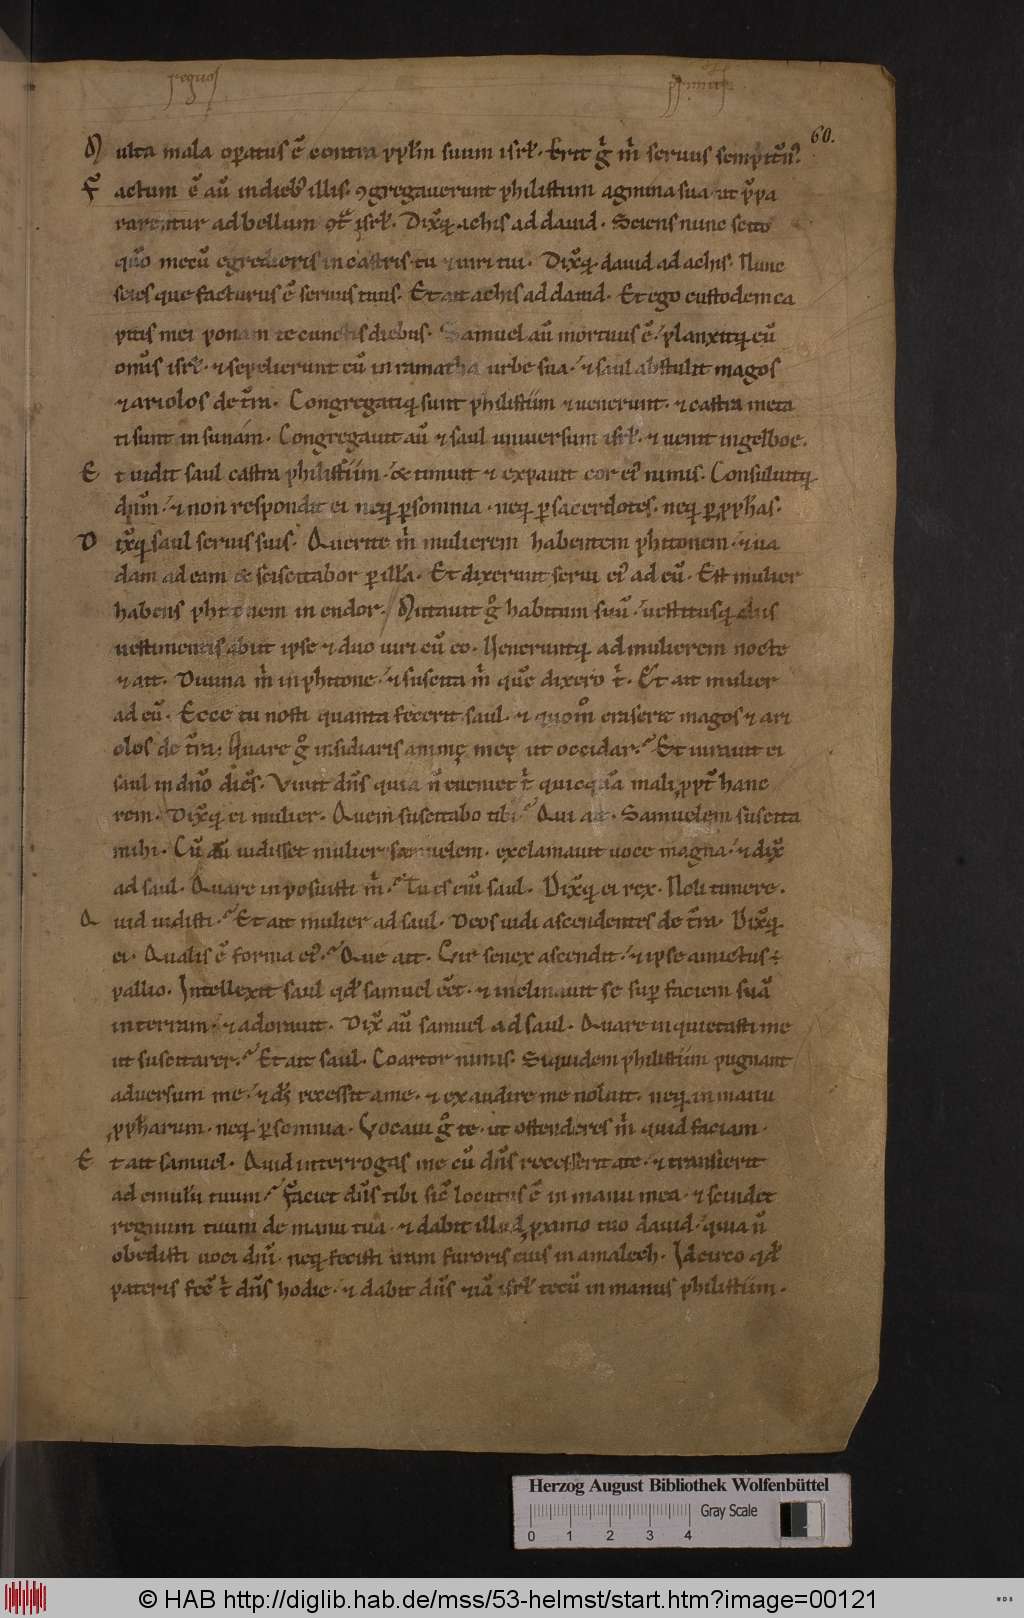 regū
primus
60.
Multa mala operatus ē contra pplm̄ suum isrl̄. Erit g̊ m̊ seruus sempit̄n̾.
Factum ē aū in dieb; illis. ꝯgregauerunt philistiim agmina sua ut p̄pa
rarentur ad bellum ꝯt̄ isrl̄. Dixitq; achis ad dauid. Sciens nunc scito
quō mecū egredieris in castris tu ⁊ uiri tui. Dixitq; dauid ad achis. Nunc
scies que facturus ē seruus tuus. Et ait achis ad dauid. Et ego custodem ca
pitis mei ponam te cunctis diebus. Samuel aū mortuus ē. planxitq; eū
omnis isrl̄. ⁊ sepelierunt eū in ramatha urbe sua. ⁊ saul abstulit magos
⁊ ariolos de tr̄a. Congregatiq; sunt philistiim ⁊ uenerunt. ⁊ castra meta
ti sunt in sunam. Congregauit aū ⁊ saul uniuersum isrl̄. ⁊ uenit in gelboe.
Et uidit saul castra philistiim. & timuit ⁊ expauit cor ei̾ nimis. Consuluitq;
dn̄m. ⁊ non respondit ei neq; ꝑ somnia. neq; ꝑ sacerdotes. neq; ꝑ ꝓph̄as.
Dixitq; saul seruis suis. Querite m̊ mulierem habentem phitonem. ⁊ ua
dam ad eam & sciscitabor ꝑ illā. Et dixerunt serui ei̾ ad eū. Est mulier
habens phitonem in endor. Mutauit g̊ habitum suū. uestitusq; aliis
uestimentis abiit ipse ⁊ duo uiri cū eo. Ueneruntq; ad mulierem nocte
⁊ ait. Diuina m̊ in phitone. ⁊ suscita m̊ quē dixero t̊. Et ait mulier
ad eū. Ecce tu nosti quanta fecerit saul. ⁊ quom̊ eraserit magos ⁊ ari
olos de tr̄a. Quare g̊ insidiaris animę męę ut occidar. Et iurauit ei
saul in dn̄o dic̄s. Viuit dn̄s quia n̄ eueniet t̊ quicquā mali ꝓpt̄ hanc
rem. Dixitq; ei mulier. Quem suscitabo tibi. Qui ait. Samuelem suscita
mihi. Cū aū uidisset mulier samuelem. exclamauit uoce magna. ⁊ dix̄
ad saul. Quare inposuisti m̊. Tu es eni̅ saul. Dixitq; ei rex. Noli timere.
Quid uidisti. Et ait mulier ad saul. Deos uidi ascendentes de tr̄a. Dixitq;
ei. Qualis ē forma ei̾. Que ait. Uir senex ascendit. ⁊ ipse amictus ÷
pallio. Intellexit saul qd̄ samuel eēt. ⁊ inclinauit se suꝑ faciem suā
in terram. ⁊ adorauit. Dix̄ aū samuel ad saul. Quare inquietasti me
ut suscitarer. Et ait saul. Coartor nimis. Siquidem philistiim pugnant
aduersum me. ⁊ ds̄ recessit a me. ⁊ exaudire me noluit. neq; in manu
ꝓph̄arum. neq; ꝑ somnia. Vocaui g̊ te. ut ostenderes m̊ quid faciam.
Et ait samuel. Quid interrogas me cū dn̄s recesserit a te. ⁊ transierit
ad emulū tuum. Faciet dn̄s tibi sic̄ locutus ē in manu mea. ⁊ scindet
regnum tuum de manu tua. ⁊ dabit illud ꝓximo tuo dauid. quia n̄
obedisti uoci dn̄i. neq; fecisti iram furoris eius in amalech. Idcirco qd̄
pateris fec̄ t̊ dn̄s hodie. ⁊ dabit dn̄s etiā isrl̄ tecū in manus philistiim.
Herzog August Bibliothek Wolfenbüttel
Gray Scale
0 1 2 3 4
© HAB http://diglib.hab.de/mss/53-helmst/start.htm?image=00121